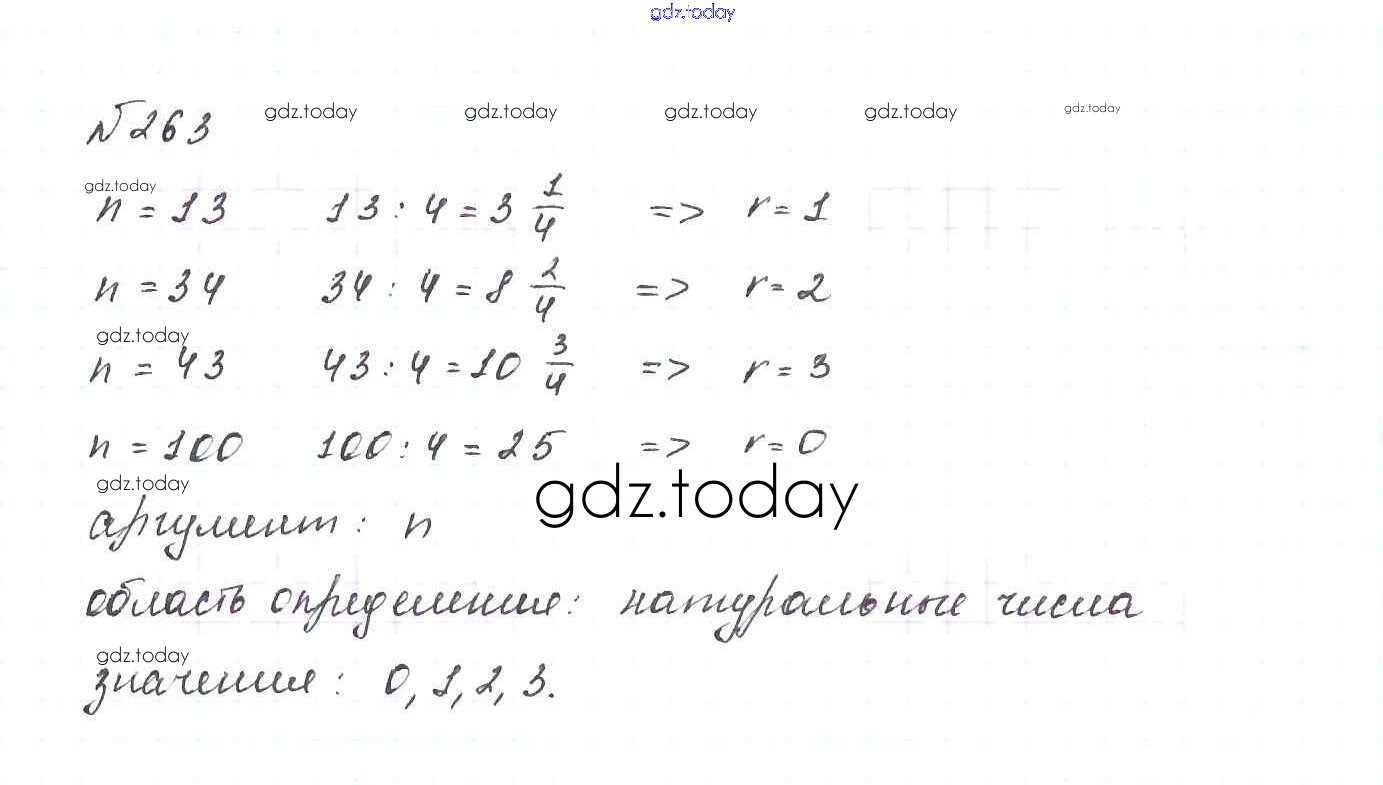 gdz.today
№263 gdz.today gdz.today gdz.today gdz.today gdz.today
gdz.today
n = 13 13 : 4 = 3 1/4 => r = 1
n = 34 34 : 4 = 8 2/4 => r = 2
gdz.today
n = 43 43 : 4 = 10 3/4 => r = 3
n = 100 100 : 4 = 25 => r = 0
gdz.today
gdz.today
аргумент : n
область определения: натуральные числа
gdz.today
значения : 0, 1, 2, 3.